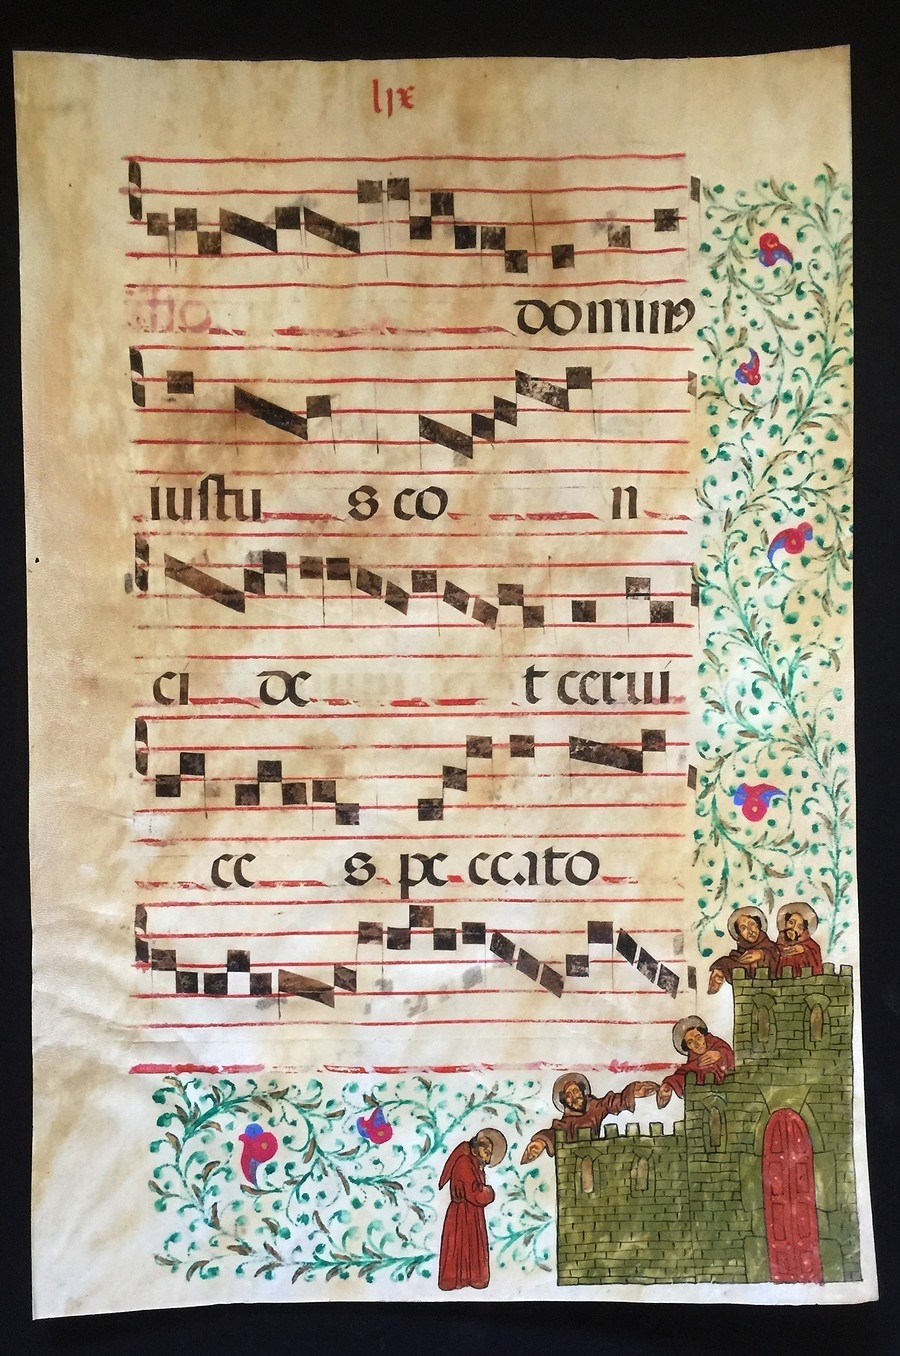 ljx
tio dominꝯ
iustu s co n
ci de t cerui
ce s pe ccato